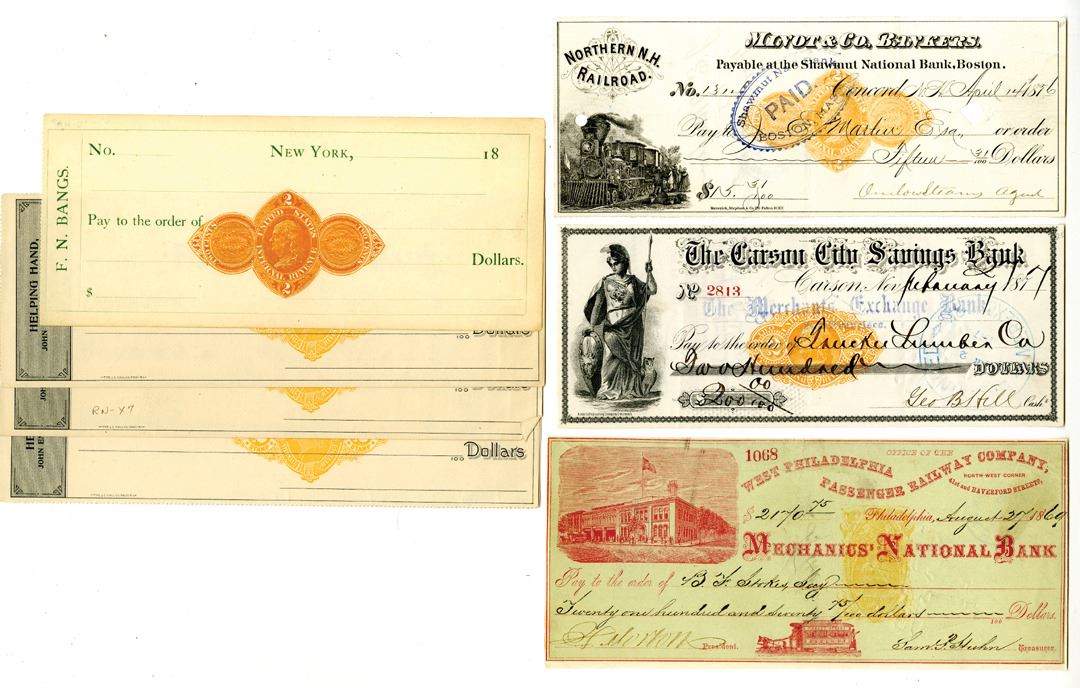 No. New York, 18
F. N. BANGS.
Pay to the order of
2
UNITED STATES
INTERNAL REVENUE
2
Dollars.
$
HELPING HAND.
JOHN
100 Dollars
JOH
RN-X7
100 Dollars
HE
JOHN E
100 Dollars
NORTHERN N.H. RAILROAD.
MINOT & CO, BANKERS.
Payable at the Shawmut National Bank, Boston.
No. Concord N.H. April 1876
Shawmut National Bank
PAID
BOSTON, MASS.
Pay to Martin Esq. or order
Fifteen 31/100 Dollars
$15 31/100
The Carson City Savings Bank
Carson, Nev. February 1877
No 2813
The Merchants Exchange Bank
Pay to the order of Truckee Lumber Co
Two Hundred 00 DOLLARS
$200 00/100 Geo B Hill Cash
1068
OFFICE OF THE
WEST PHILADELPHIA PASSENGER RAILWAY COMPANY,
NORTH-WEST CORNER
41st and HAVERFORD STREETS,
$2170 75 Philadelphia, August 27 1869
MECHANICS' NATIONAL BANK
Pay to the order of B. F. Stokes, Esq
Twenty one hundred and seventy 75/100 dollars 100 Dollars.
President. Sam. P. Huhn Treasurer.